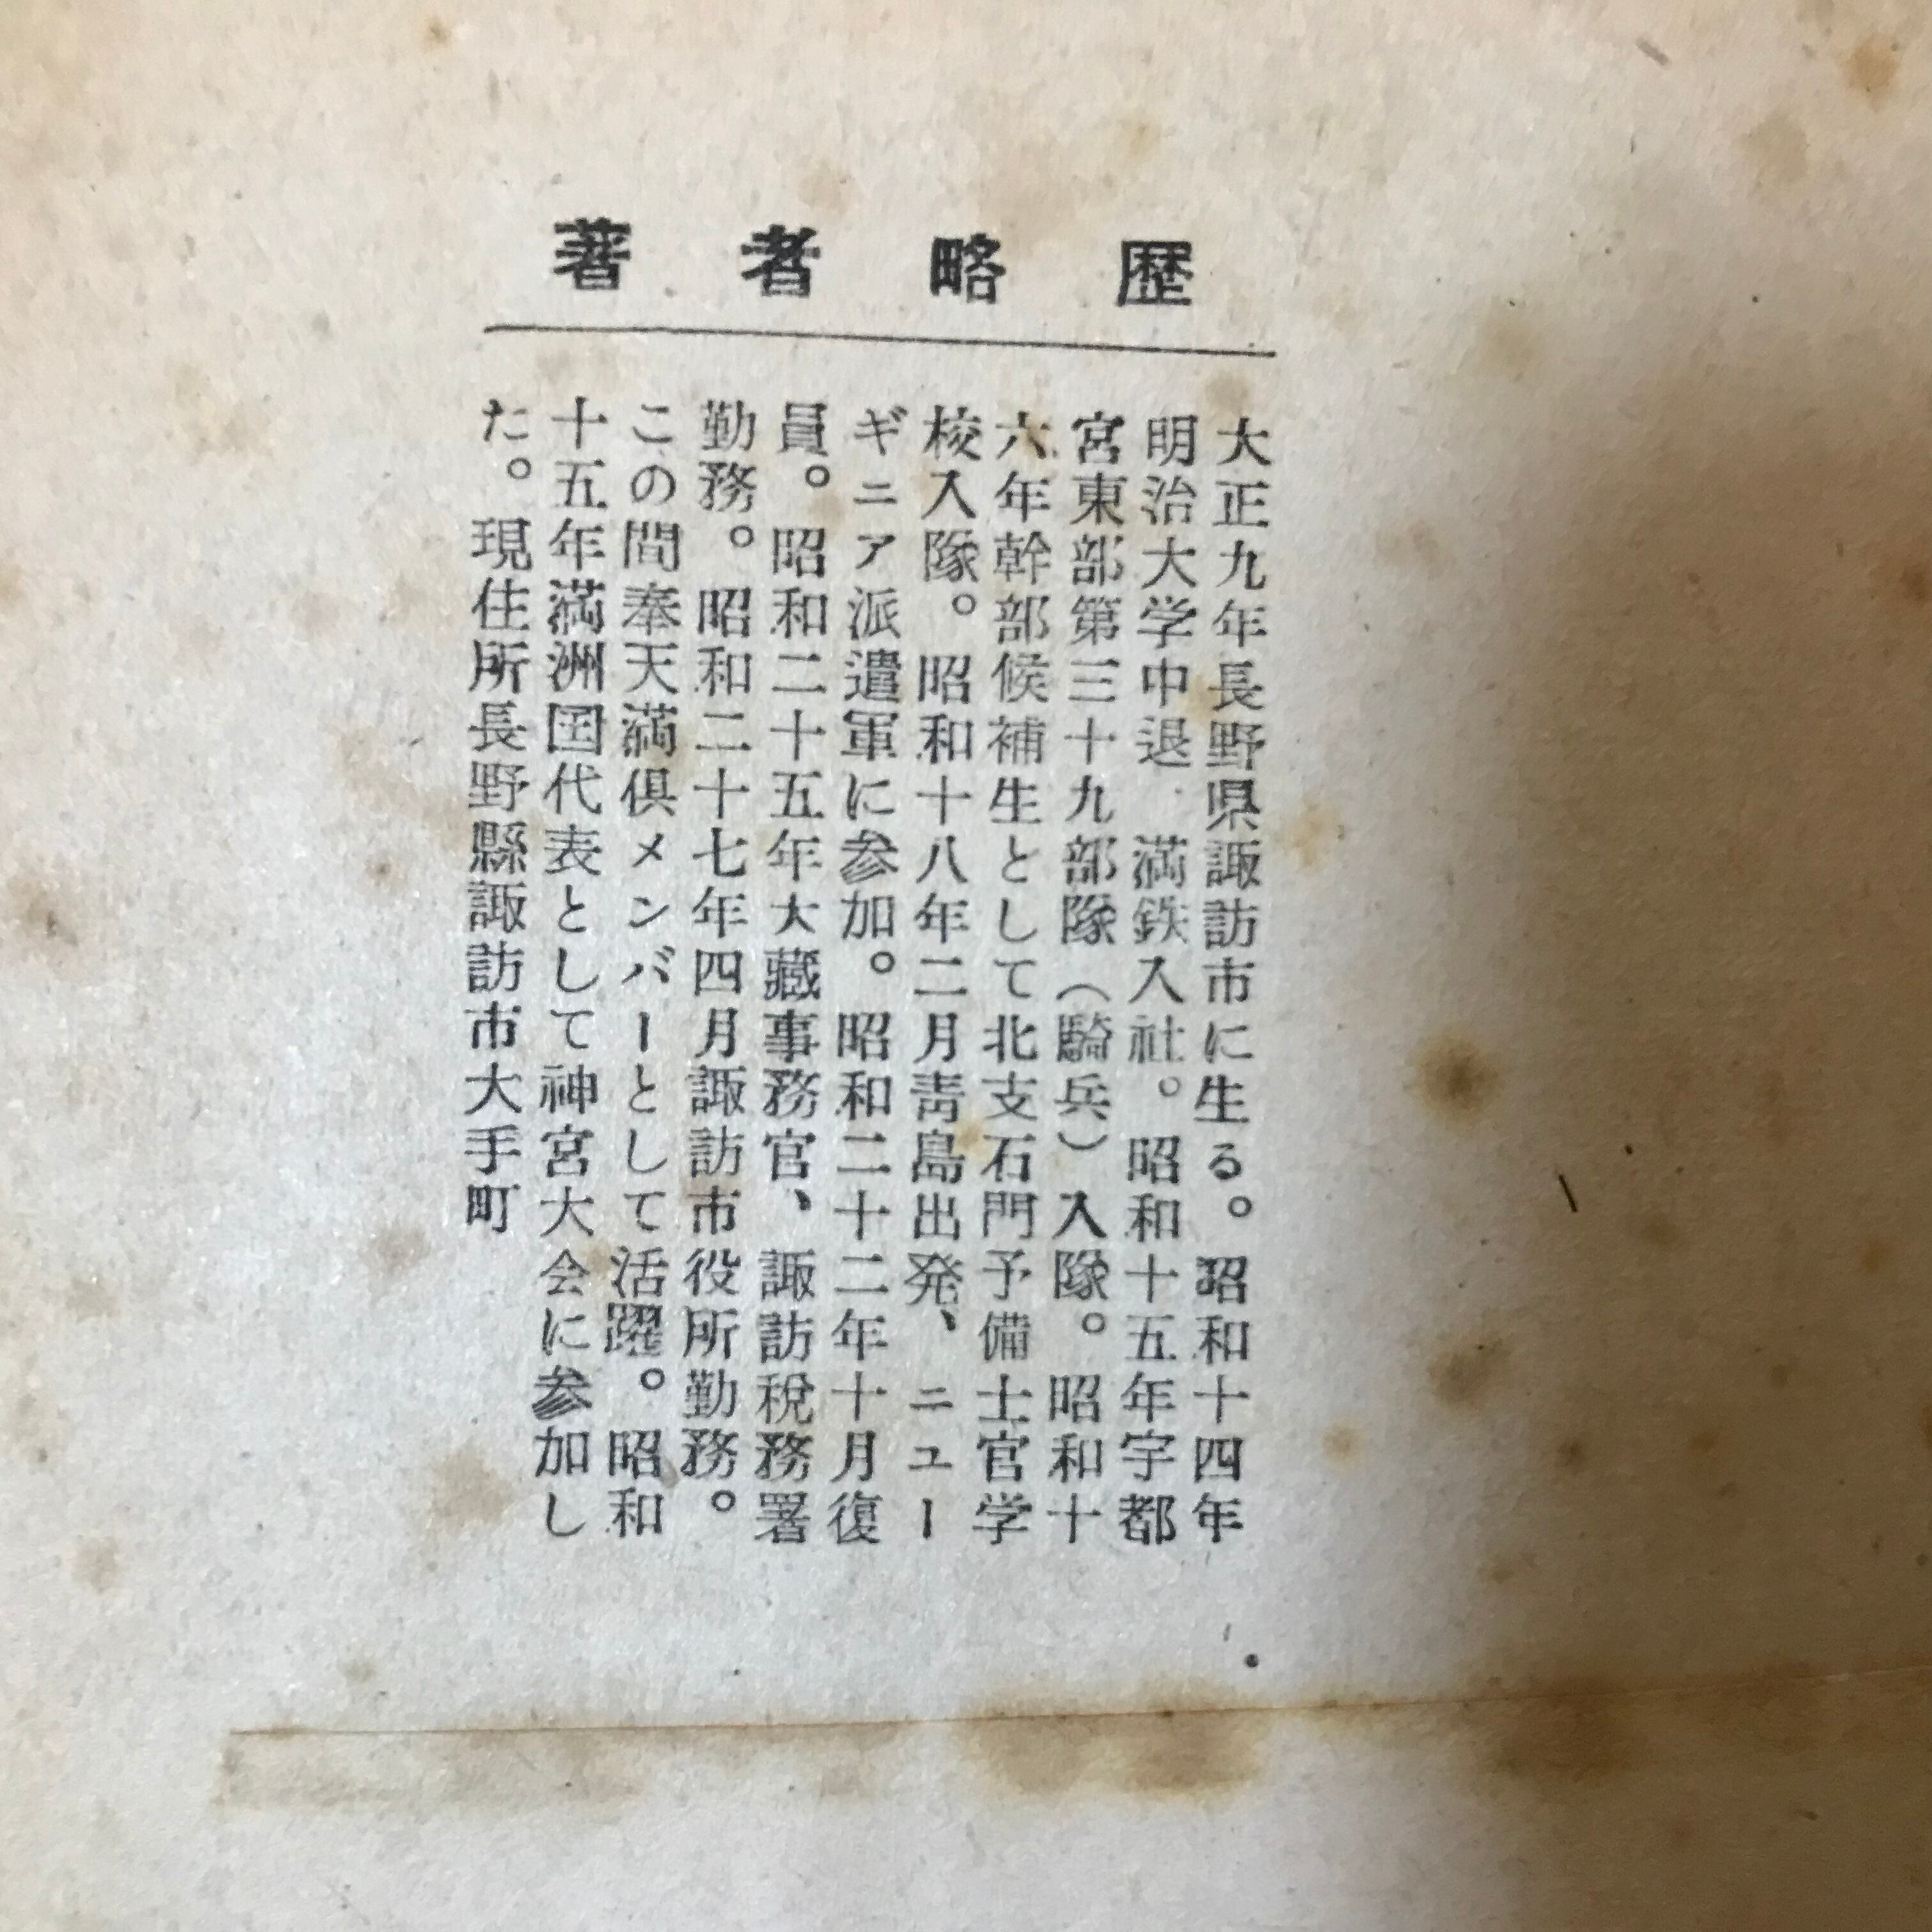 著者略歴
大正九年長野県諏訪市に生る。昭和十四年
明治大学中退　満鉄入社。昭和十五年宇都
宮東部第三十九部隊（騎兵）入隊。昭和十
六年幹部候補生として北支石門予備士官学
校入隊。昭和十八年二月靑島出発、ニュー
ギニア派遣軍に参加。昭和二十二年十月復
員。昭和二十五年大藏事務官、諏訪税務署
勤務。昭和二十七年四月諏訪市役所勤務。
この間奉天満倶メンバーとして活躍。昭和
十五年満洲国代表として神宮大会に参加し
た。現住所長野縣諏訪市大手町